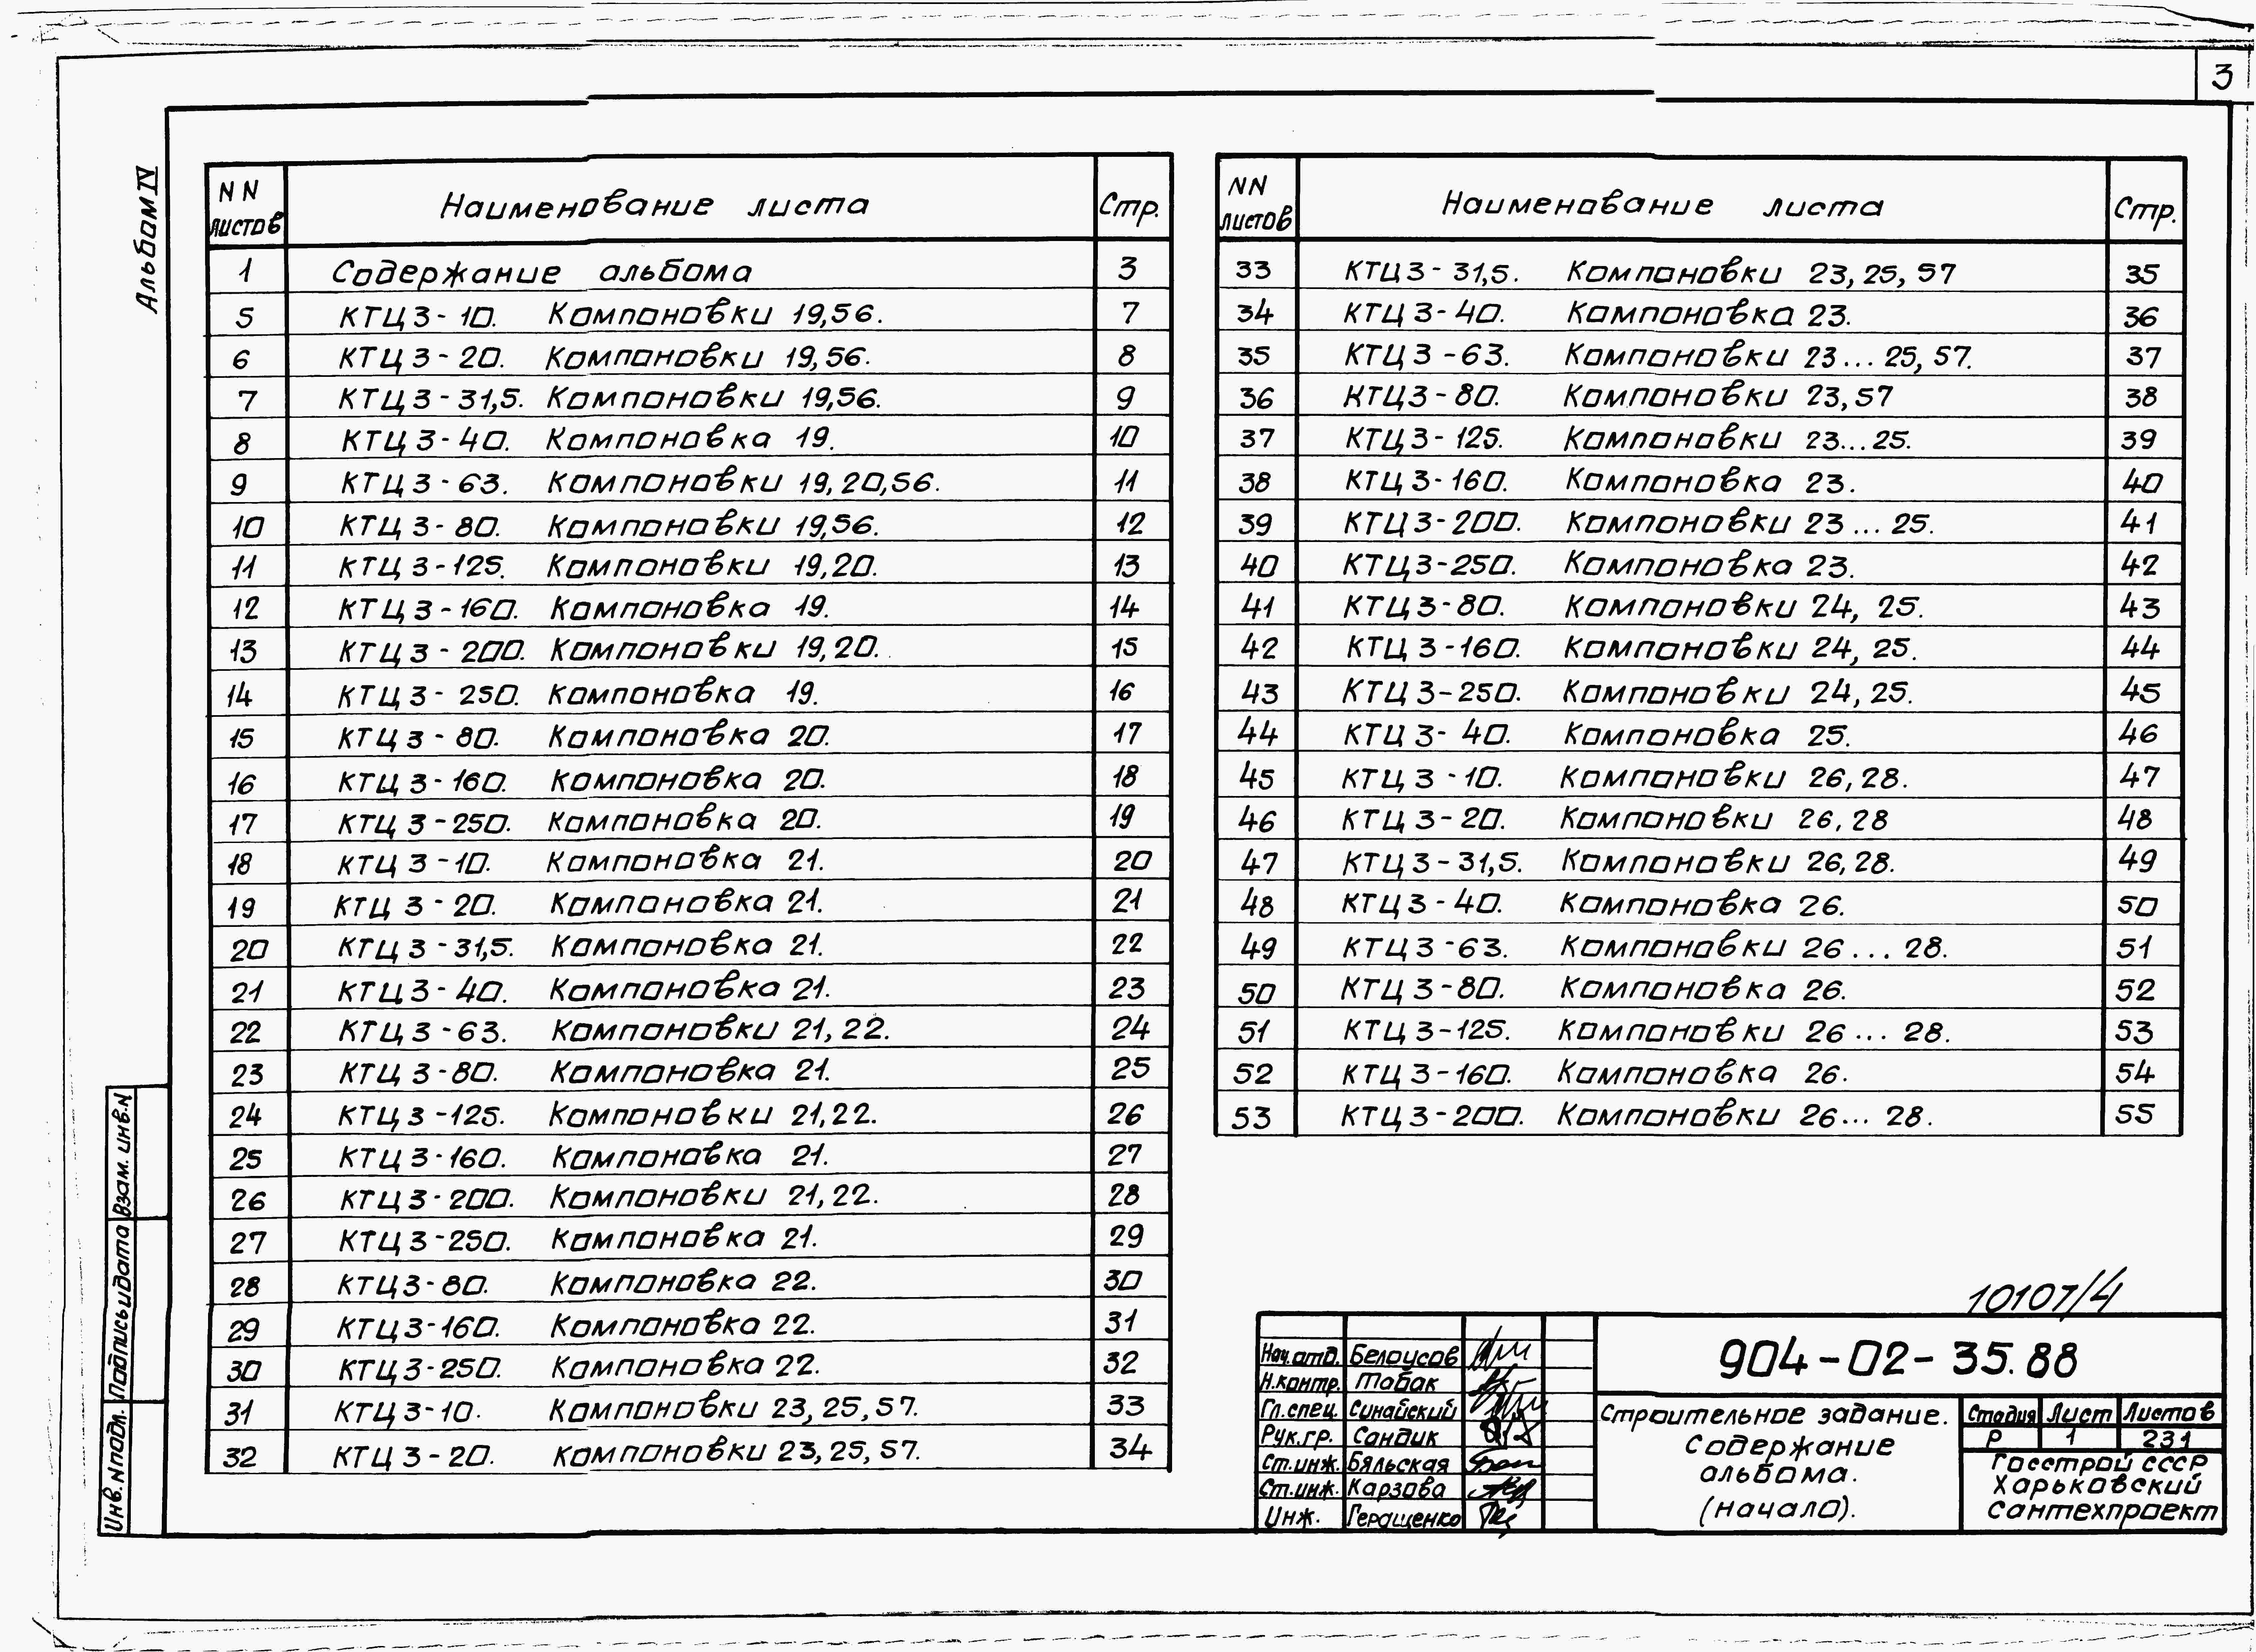 3
Альбом IV
NN листов Наименование листа Стр.
1 Содержание альбома 3
5 КТЦ 3-10. Компоновки 19,56. 7
6 КТЦ 3-20. Компоновки 19,56. 8
7 КТЦ 3-31,5. Компоновки 19,56. 9
8 КТЦ 3-40. Компоновка 19. 10
9 КТЦ 3-63. Компоновки 19,20,56. 11
10 КТЦ 3-80. Компоновки 19,56. 12
11 КТЦ 3-125. Компоновки 19,20. 13
12 КТЦ 3-160. Компоновка 19. 14
13 КТЦ 3-200. Компоновки 19,20. 15
14 КТЦ 3-250. Компоновка 19. 16
15 КТЦ 3-80. Компоновка 20. 17
16 КТЦ 3-160. Компоновка 20. 18
17 КТЦ 3-250. Компоновка 20. 19
18 КТЦ 3-10. Компоновка 21. 20
19 КТЦ 3-20. Компоновка 21. 21
20 КТЦ 3-31,5. Компоновка 21. 22
21 КТЦ 3-40. Компоновка 21. 23
22 КТЦ 3-63. Компоновки 21,22. 24
23 КТЦ 3-80. Компоновка 21. 25
24 КТЦ 3-125. Компоновки 21,22. 26
25 КТЦ 3-160. Компоновка 21. 27
26 КТЦ 3-200. Компоновки 21,22. 28
27 КТЦ 3-250. Компоновка 21. 29
28 КТЦ 3-80. Компоновка 22. 30
29 КТЦ 3-160. Компоновка 22. 31
30 КТЦ 3-250. Компоновка 22. 32
31 КТЦ 3-10. Компоновки 23,25,57. 33
32 КТЦ 3-20. Компоновки 23,25,57. 34
NN листов Наименование листа Стр.
33 КТЦ 3-31,5. Компоновки 23,25,57 35
34 КТЦ 3-40. Компоновка 23. 36
35 КТЦ 3-63. Компоновки 23...25,57. 37
36 КТЦ 3-80. Компоновки 23,57 38
37 КТЦ 3-125. Компоновки 23...25. 39
38 КТЦ 3-160. Компоновка 23. 40
39 КТЦ 3-200. Компоновки 23...25. 41
40 КТЦ 3-250. Компоновка 23. 42
41 КТЦ 3-80. Компоновки 24, 25. 43
42 КТЦ 3-160. Компоновки 24, 25. 44
43 КТЦ 3-250. Компоновки 24,25. 45
44 КТЦ 3-40. Компоновка 25. 46
45 КТЦ 3-10. Компоновки 26,28. 47
46 КТЦ 3-20. Компоновки 26,28 48
47 КТЦ 3-31,5. Компоновки 26,28. 49
48 КТЦ 3-40. Компоновка 26. 50
49 КТЦ 3-63. Компоновки 26...28. 51
50 КТЦ 3-80. Компоновка 26. 52
51 КТЦ 3-125. Компоновки 26...28. 53
52 КТЦ 3-160. Компоновка 26. 54
53 КТЦ 3-200. Компоновки 26...28. 55
Инв.N подл. Подпись и дата Взам. инв.N
10107/4
Нач.отд. Белоусов
Н.контр. Табак
Гл.спец. Синайский
Рук.гр. Сандик
Ст.инж. Бяльская
Ст.инж. Карзова
Инж. Геращенко
904-02-35.88
Строительное задание.
Содержание
альбома.
(начало).
Стадия Лист Листов
Р 1 231
Госстрой СССР
Харьковский
Сантехпроект